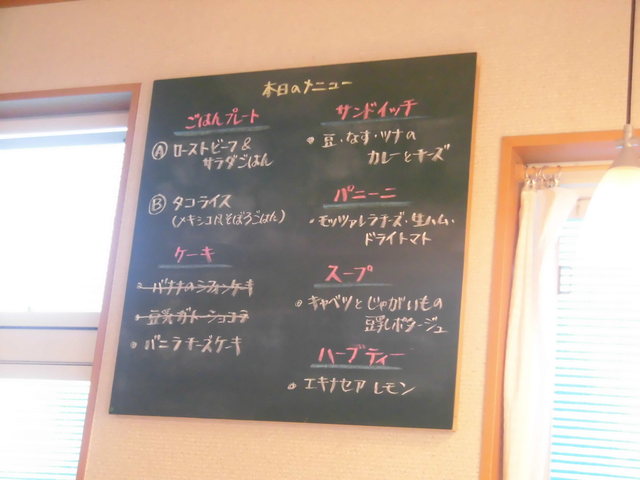 本日のメニュー
ごはんプレート
Ⓐ ローストビーフ&
サラダごはん
Ⓑ タコライス
(メキシコ風そぼろごはん)
ケーキ
・バナナのシフォンケーキ
・豆乳ガトーショコラ
・バニラチーズケーキ
サンドイッチ
・豆・なす・ツナの
カレーとチーズ
パニーニ
・モッツァレラチーズ・生ハム・
ドライトマト
スープ
・キャベツとじゃがいもの
豆乳ポタージュ
ハーブティー
・エキナセア レモン